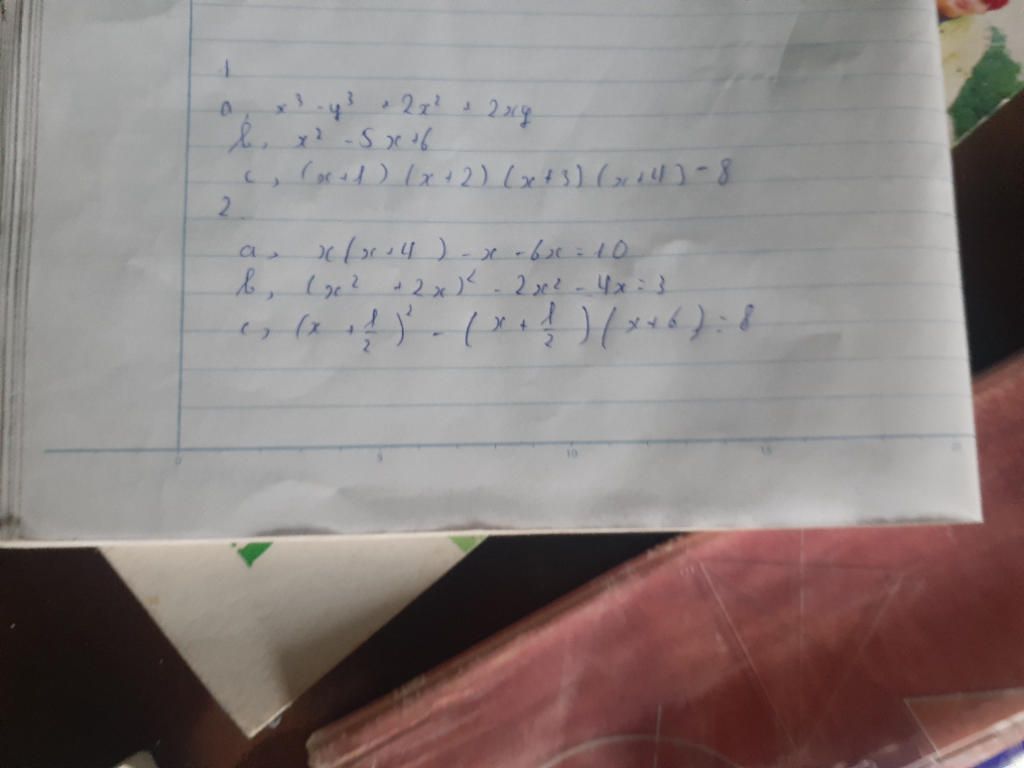 1
a, x³ - y³ + 2x² + 2xy
b, x² - 5x+6
c, (x+1) (x+2) (x+3) (x+4) - 8
2.
a, x(x+4) - x - 6x = 10
b, (x² + 2x)² - 2x² - 4x = 3
c, (x + 1/2)² - (x + 1/2)(x+6) = 8
0 5 10 15 20